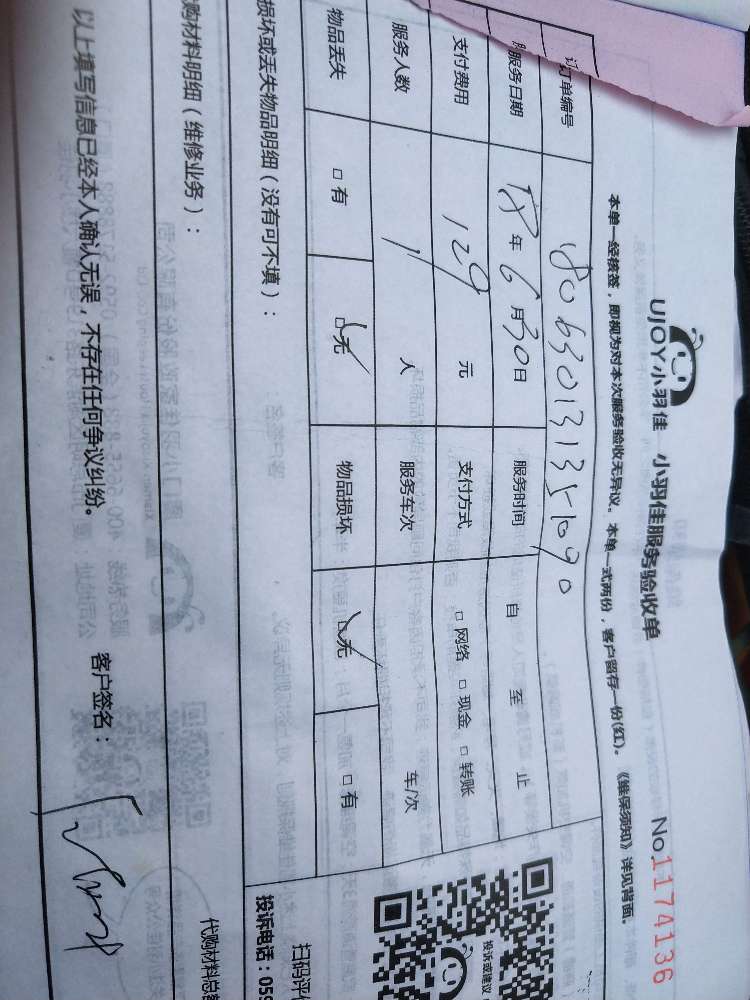 UJOY小羽佳 小羽佳服务验收单 No.1174136
本单一经核签，即视为对本次服务验收无异议。本单一式两份，客户留存一份(红)。《维保须知》详见背面。
订单编号 180630131351090
服务日期 18年6月30日 服务时间 自 至 止
支付费用 129元 支付方式 □网络 □现金 □转账
服务人数 1人 服务车次 车/次
物品丢失 □有 □无 物品损坏 □无 □有
损坏或丢失物品明细（没有可不填）：
扫码评
投诉或建议
投诉电话：059
购材料明细（维修业务）：
代购材料总
以上填写信息已经本人确认无误，不存在任何争议纠纷。 客户签名：